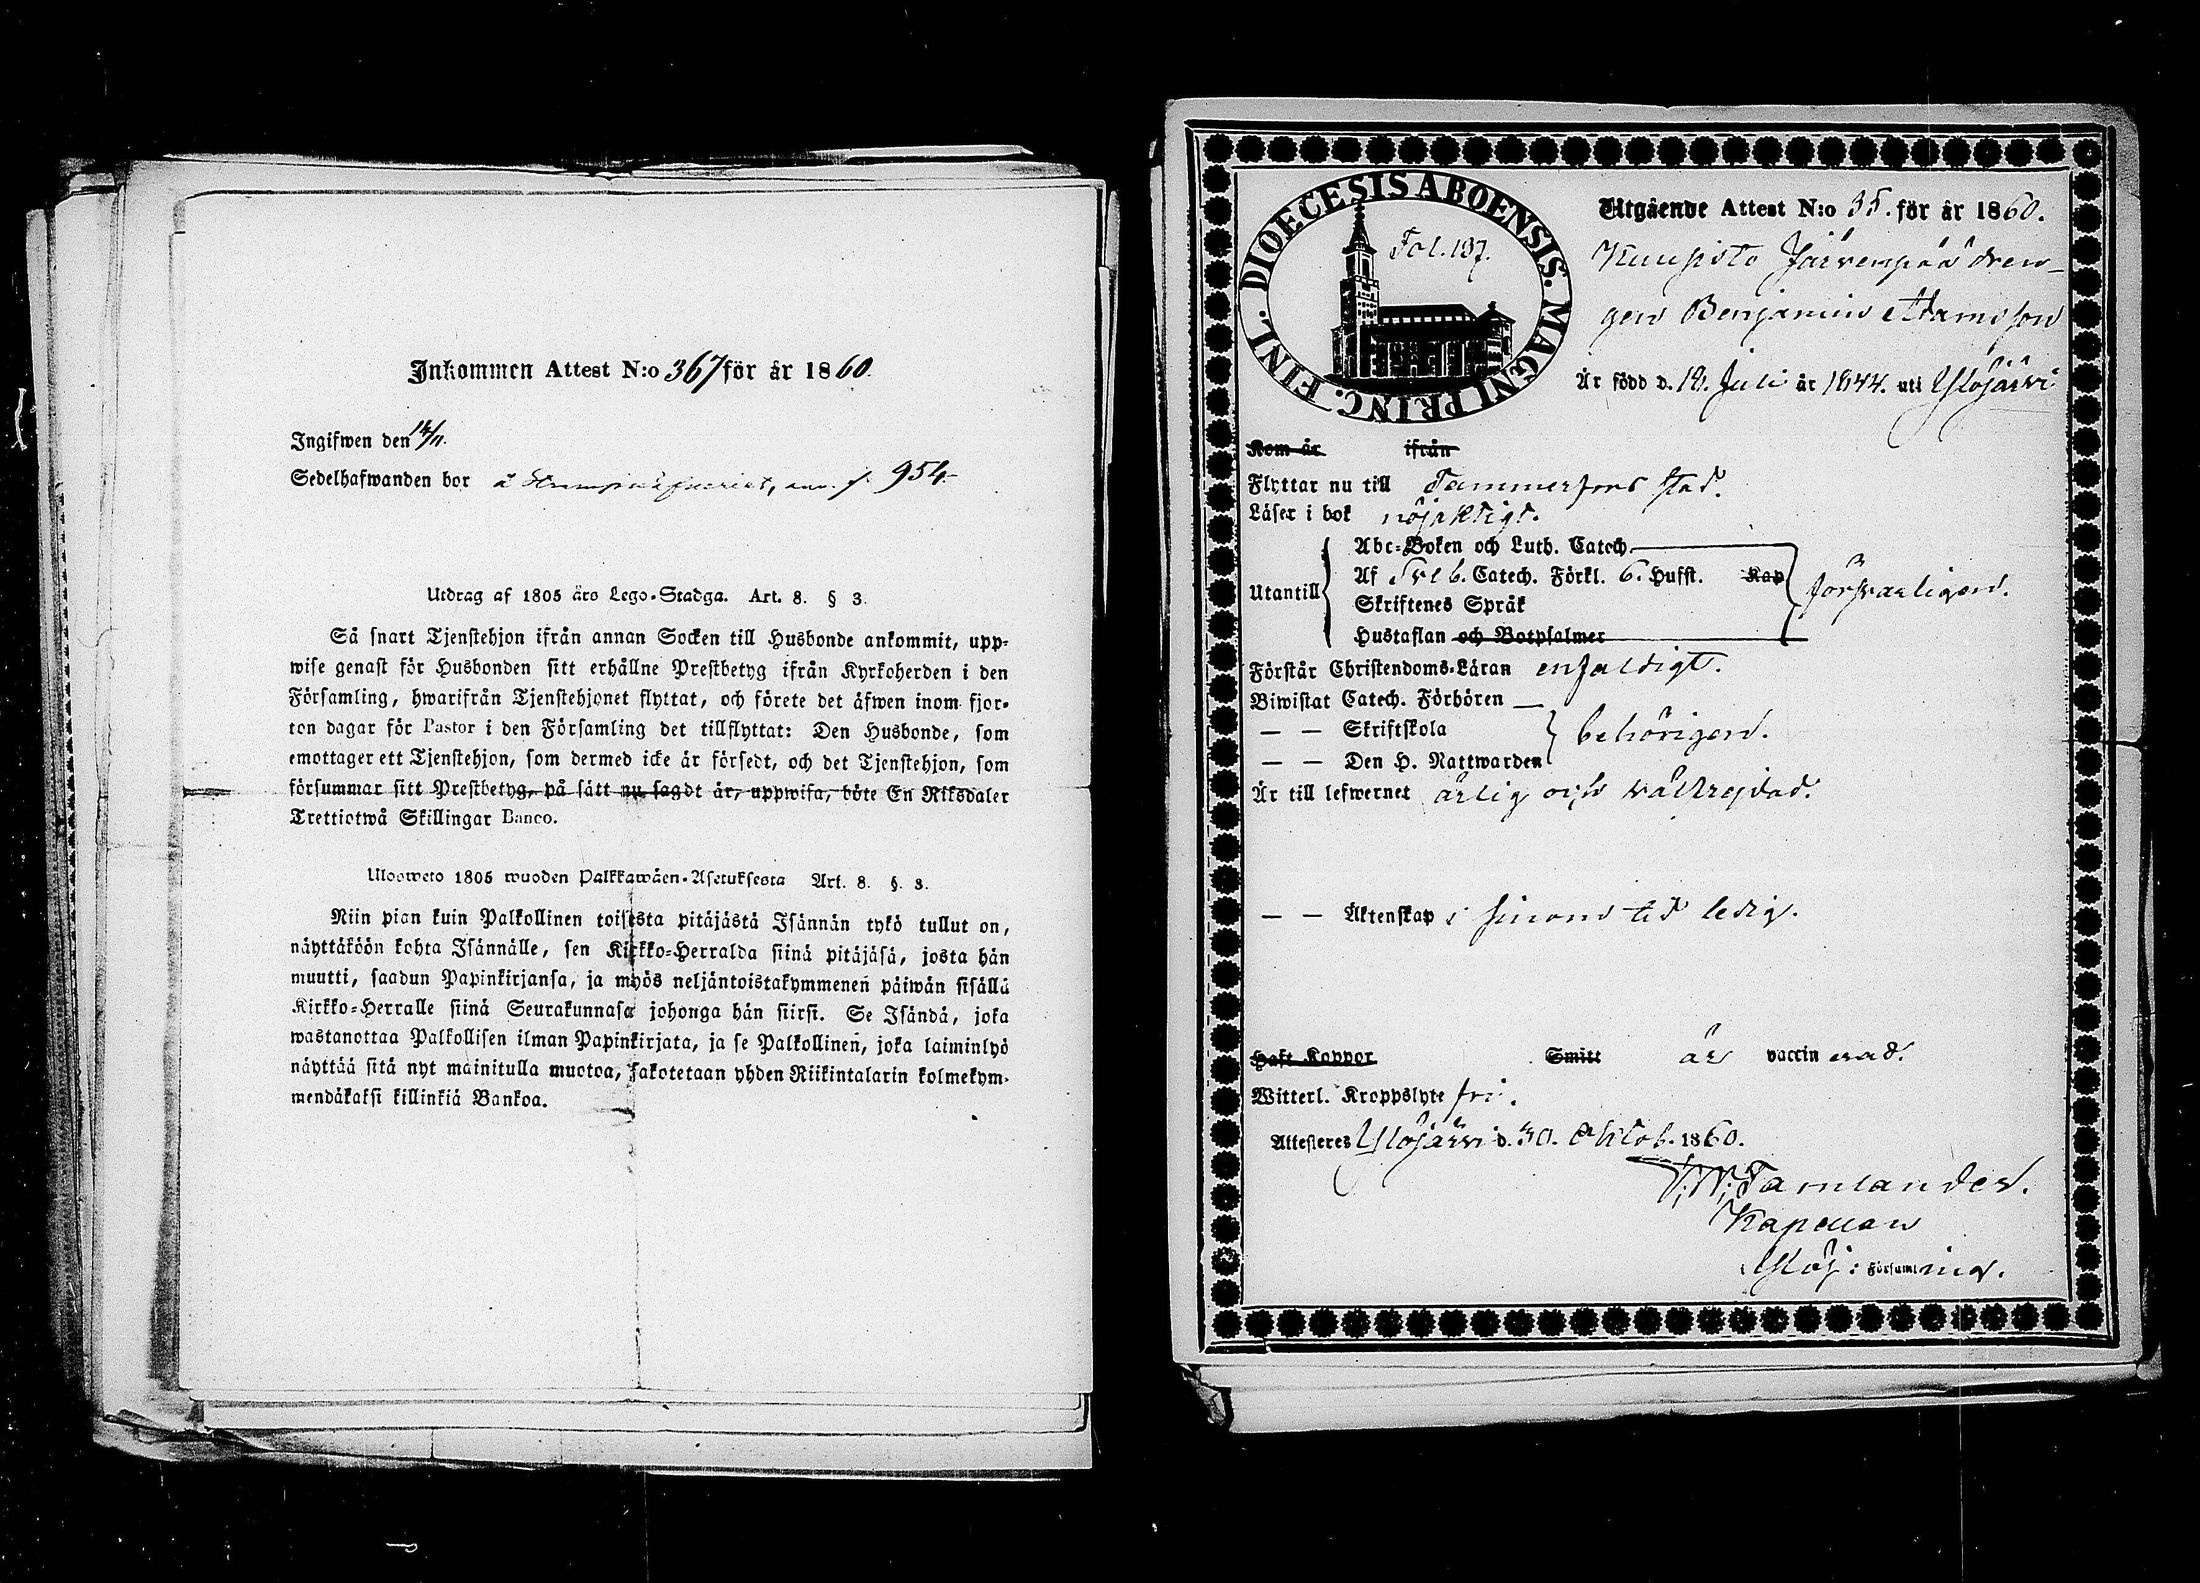 Inkommen Attest N:o 367 för år 1860.
Ingifwen den 14/11.
Sedelhafwanden bor å 954.
Utdrag af 1805 års Lego-Stadga. Art. 8. § 3.
Så snart Tjenstehjon ifrån annan Socken till Husbonde ankommit, upp-
wise genast för Husbonden sitt erhållne Prestbetyg ifrån Kyrkoherden i den
Församling, hwarifrån Tjenstehjonet flyttat, och förete det äfwen inom fjor-
ton dagar för Pastor i den Församling det tillflyttat: Den Husbonde, som
emottager ett Tjenstehjon, som dermed icke är försedt, och det Tjenstehjon, som
försummar sitt Prestbetyg, på sätt nu sagdt är, uppwisa, böte En Riksdaler
Trettiotwå Skillingar Banco.
Ulosweto 1805 wuoden Palkkawäen-Asetuksesta Art. 8. §. 3.
Niin pian kuin Palkollinen toisesta pitäjästä Isännän tykö tullut on,
näyttäköön kohta Isännälle, sen Kirkko-Herralda siinä pitäjäsä, josta hän
muutti, saadun Papinkirjansa, ja myös neljäntoistakymmenen päiwän sisällä
Kirkko-Herralle siinä Seurakunnasa johonga hän siirsi. Se Isändä, joka
wastanottaa Palkollisen ilman Papinkirjata, ja se Palkollinen, joka laiminlyö
näyttää sitä nyt mainitulla muotoa, sakotetaan yhden Riikintalarin kolmekym-
mendäkaksi killinkiä Bankoa.
DIOECESIS ABOENSIS. MAGNI PRINC. FINL.
Fol. 137.
Utgående Attest N:o 35. för år 1860.
Kuusisto Järvenpää dren-
gen Benjamin Adamsson
Är född d. 18. Juli år 1844. uti Ylöjärvi
Kom år ifrån
Flyttar nu till Tammerfors stad.
Läser i bok nöjaktigt.
Abc-Boken och Luth. Catech.
Utantill Af Sveb. Catech. Förkl. 6. Hufst. Kap försvarligen.
Skriftenes Språk
Hustaflan och Botpsalmer
Förstår Christendoms-Läran enfaldigt.
Biwistat Catech. Förhören
— — Skriftskola behörigen.
— — Den H. Nattwarden
Är till lefwernet ärlig och välfrejdad.
— — Äktenskap i sinom tid ledig.
Haft Koppor Smitt är vaccinerad.
Witterl. Kroppslyte fri.
Attesteres Ylöjärvi d. 30. Oktob. 1860.
Tamlander.
Kapellan
Ylöj: Församling.